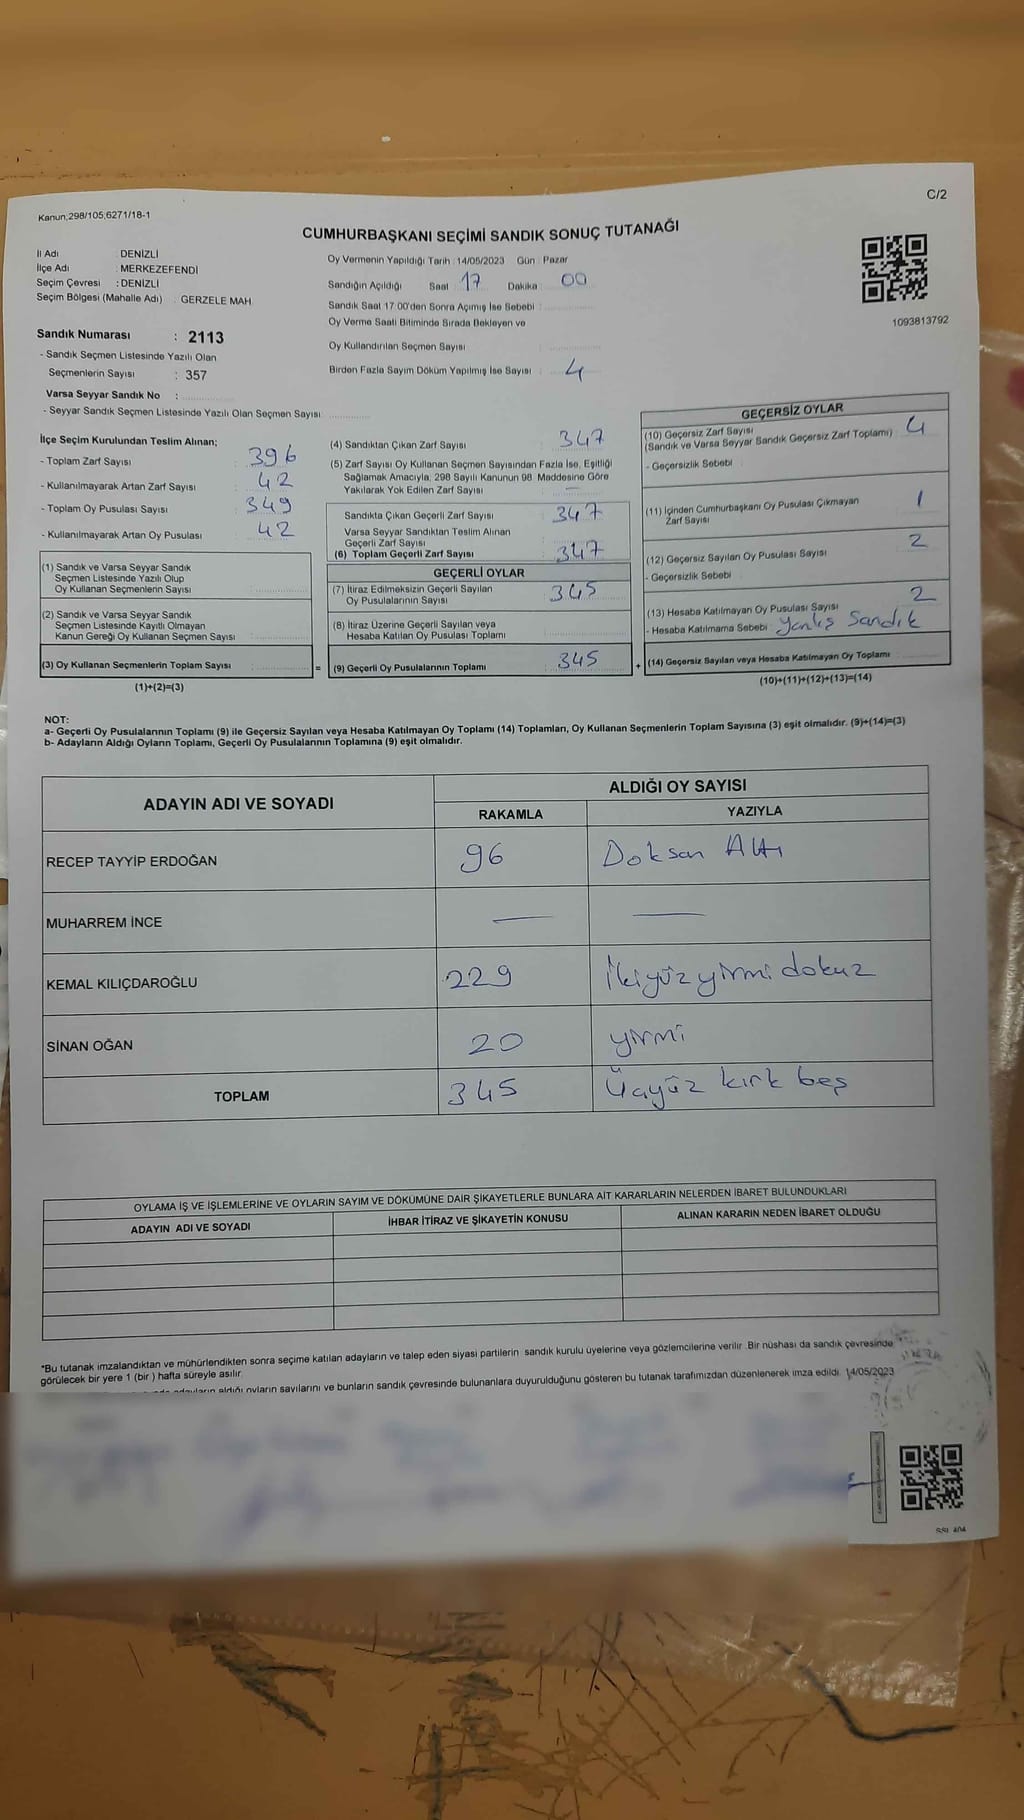 C/2
Kanun;298/105;6271/18-1
CUMHURBAŞKANI SEÇİMİ SANDIK SONUÇ TUTANAĞI
İl Adı : DENİZLİ
İlçe Adı : MERKEZEFENDİ
Seçim Çevresi : DENİZLİ
Seçim Bölgesi (Mahalle Adı) : GERZELE MAH.
Sandık Numarası : 2113
- Sandık Seçmen Listesinde Yazılı Olan
Seçmenlerin Sayısı : 357
Varsa Seyyar Sandık No :
- Seyyar Sandık Seçmen Listesinde Yazılı Olan Seçmen Sayısı:
Oy Vermenin Yapıldığı Tarih : 14/05/2023 Gün : Pazar
Sandığın Açıldığı Saat : 17 Dakika : 00
Sandık Saat 17:00'den Sonra Açımış İse Sebebi :
Oy Verme Saati Bitiminde Sırada Bekleyen ve
Oy Kullandırılan Seçmen Sayısı :
Birden Fazla Sayım Döküm Yapılmış İse Sayısı : 4
1093813792
İlçe Seçim Kurulundan Teslim Alınan;
- Toplam Zarf Sayısı : 396
- Kullanılmayarak Artan Zarf Sayısı : 42
- Toplam Oy Pusulası Sayısı : 349
- Kullanılmayarak Artan Oy Pusulası : 42
(1) Sandık ve Varsa Seyyar Sandık
Seçmen Listesinde Yazılı Olup
Oy Kullanan Seçmenlerin Sayısı :
(2) Sandık ve Varsa Seyyar Sandık
Seçmen Listesinde Kayıtlı Olmayan
Kanun Gereği Oy Kullanan Seçmen Sayısı :
(3) Oy Kullanan Seçmenlerin Toplam Sayısı :
(1)+(2)=(3)
(4) Sandıktan Çıkan Zarf Sayısı : 347
(5) Zarf Sayısı Oy Kullanan Seçmen Sayısından Fazla İse, Eşitliği
Sağlamak Amacıyla; 298 Sayılı Kanunun 98. Maddesine Göre
Yakılarak Yok Edilen Zarf Sayısı : —
Sandıkta Çıkan Geçerli Zarf Sayısı : 347
Varsa Seyyar Sandıktan Teslim Alınan
Geçerli Zarf Sayısı :
(6) Toplam Geçerli Zarf Sayısı : 347
GEÇERLİ OYLAR
(7) İtiraz Edilmeksizin Geçerli Sayılan : 345
Oy Pusulalarının Sayısı
(8) İtiraz Üzerine Geçerli Sayılan veya
Hesaba Katılan Oy Pusulası Toplamı :
= (9) Geçerli Oy Pusulalarının Toplamı : 345 +
GEÇERSİZ OYLAR
(10) Geçersiz Zarf Sayısı : 4
(Sandık ve Varsa Seyyar Sandık Geçersiz Zarf Toplamı)
- Geçersizlik Sebebi :
(11) İçinden Cumhurbaşkanı Oy Pusulası Çıkmayan : 1
Zarf Sayısı
(12) Geçersiz Sayılan Oy Pusulası Sayısı : 2
- Geçersizlik Sebebi :
(13) Hesaba Katılmayan Oy Pusulası Sayısı : 2
- Hesaba Katılmama Sebebi : Yanlış Sandık
(14) Geçersiz Sayılan veya Hesaba Katılmayan Oy Toplamı :
(10)+(11)+(12)+(13)=(14)
NOT:
a- Geçerli Oy Pusulalarının Toplamı (9) ile Geçersiz Sayılan veya Hesaba Katılmayan Oy Toplamı (14) Toplamları, Oy Kullanan Seçmenlerin Toplam Sayısına (3) eşit olmalıdır. (9)+(14)=(3)
b- Adayların Aldığı Oyların Toplamı, Geçerli Oy Pusulalarının Toplamına (9) eşit olmalıdır.
ADAYIN ADI VE SOYADI ALDIĞI OY SAYISI
RAKAMLA YAZIYLA
RECEP TAYYİP ERDOĞAN 96 Doksan Altı
MUHARREM İNCE — —
KEMAL KILIÇDAROĞLU 229 İkiyüzyirmidokuz
SİNAN OĞAN 20 yirmi
TOPLAM 345 Üçyüz kırk beş
OYLAMA İŞ VE İŞLEMLERİNE VE OYLARIN SAYIM VE DÖKÜMÜNE DAİR ŞİKAYETLERLE BUNLARA AİT KARARLARIN NELERDEN İBARET BULUNDUKLARI
ADAYIN ADI VE SOYADI İHBAR İTİRAZ VE ŞİKAYETİN KONUSU ALINAN KARARIN NEDEN İBARET OLDUĞU
*Bu tutanak imzalandıktan ve mühürlendikten sonra seçime katılan adayların ve talep eden siyasi partilerin sandık kurulu üyelerine veya gözlemcilerine verilir. Bir nüshası da sandık çevresinde
görülecek bir yere 1 (bir ) hafta süreyle asılır.
adayların aldığı oyların sayılarını ve bunların sandık çevresinde bulunanlara duyurulduğunu gösteren bu tutanak tarafımızdan düzenlenerek imza edildi. 14/05/2023